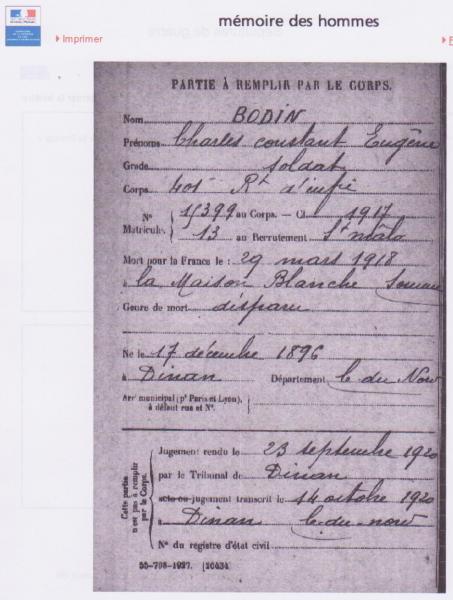 mémoire des hommes
Imprimer
PARTIE À REMPLIR PAR LE CORPS.
Nom BODIN
Prénoms Charles constant Eugène
Grade soldat
Corps 401e Rt d'infie
N° 15399 au Corps. — Cl. 1917
Matricule. 13 au Recrutement St malo
Mort pour la France le : 29 mars 1918
à la Maison Blanche Somme
Genre de mort disparu
Né le 17 décembre 1896
à Dinan Département C. du Nord
Arr' municipal (p' Paris et Lyon),
à défaut rue et N°.
Cette partie
n'est pas à remplir
par le Corps.
Jugement rendu le 23 septembre 1920
par le Tribunal de Dinan
acte ou jugement transcrit le 14 octobre 1920
à Dinan C. du nord
N° du registre d'état civil
55-708-1927. [26434]